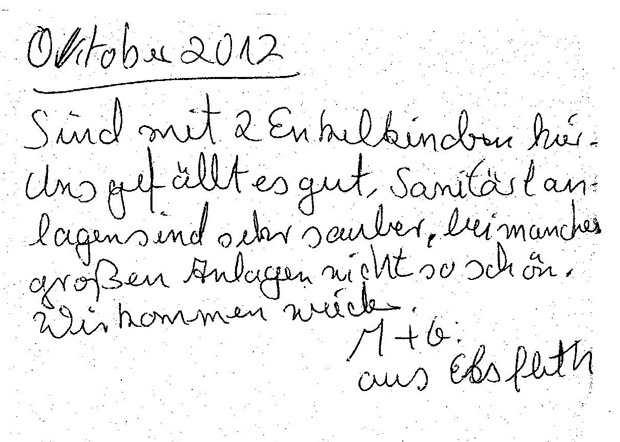 Oktober 2012
Sind mit 2 Enkelkindern hier.
Uns gefällt es gut, Sanitäran-
lagen sind sehr sauber, bei manchen
großen Anlagen nicht so schön.
Wir kommen wieder.
M + G.
aus